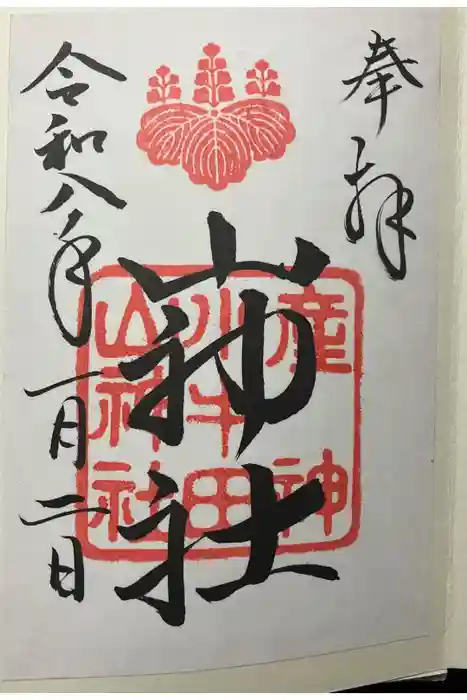 奉拝
山神社
令和八年一月二日
産神
小牛田
山神社